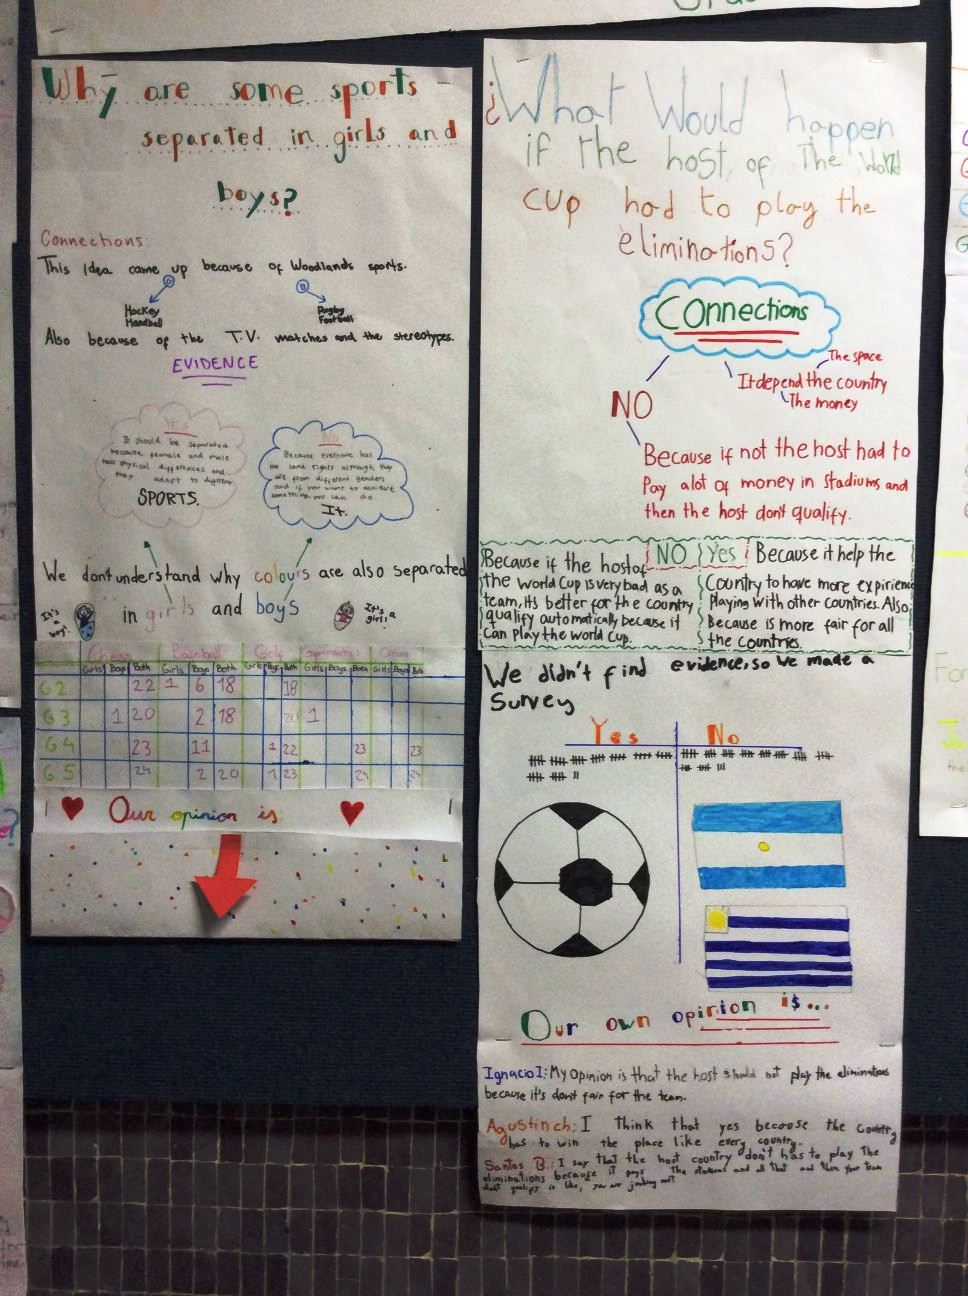 Why are some sports
separated in girls and
boys?
Connections:
This Idea came up because of Woodlands sports.
Hockey
Handball
Rugby
Football
Also because of the T.V. matches and the stereotypes.
EVIDENCE
YES
It should be separated
because female and male
have physical differences and
they adapt to different
SPORTS.
No
Because everyone has
the same rights although they
are from different genders
and if you want to achieve
something you can do
It.
We dont understand why colours are also separated
in girls and boys
It's a boy!
It's a girl!
Chess Baseball Golf Gymnastics
Girls Boys Both Girls Boys Both Girls Boys Both Girls Boys Both Girls Boys Both
G2 22 1 6 18 18
G3 1 20 2 18 20 1
G4 23 11 1 22 23 23
G5 24 2 20 1 23 24 24
Our opinion is:
¿What Would happen
if the host, of The World
cup had to play the
eliminations?
Connections
NO
It depend the country
The space
The money
Because if not the host had to
Pay alot of money in stadiums and
then the host don't qualify.
NO
Because if the host of
the world Cup is very bad as a
team, Its better for the country
qualify automatically because it
can play the world cup.
Yes
Because it help the
Country to have more expirience
Playing with other countries. Also
Because is more fair for all
the countries.
We didn't find evidence, so we made a
Survey
Yes No
Our own opinion is...
Ignacio I: My Opinion is that the host should not play the eliminations
because it's don't fair for the team.
Agustin ch: I Think that yes becoose the Country
has to win the place like every country.
Santos B.: I say that the host country don't has to play The
eliminations because it pays The stadiums and all that and then your team
don't qualify is like, you are joking me?